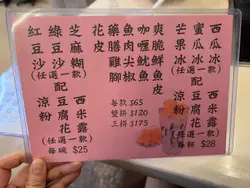 西瓜冰
蜜瓜冰
芒果冰
(任選一款)
配
西米露
豆腐花
涼粉
每杯 $28
爽脆鮮魚皮
咖喱魷魚
魚肉尖椒
藥膳雞腳
花皮
每款 $65
雙拼 $120
三拼 $175
芝麻糊
綠豆沙
紅豆沙
(任選一款)
配
西米露
豆腐花
涼粉
每碗 $25